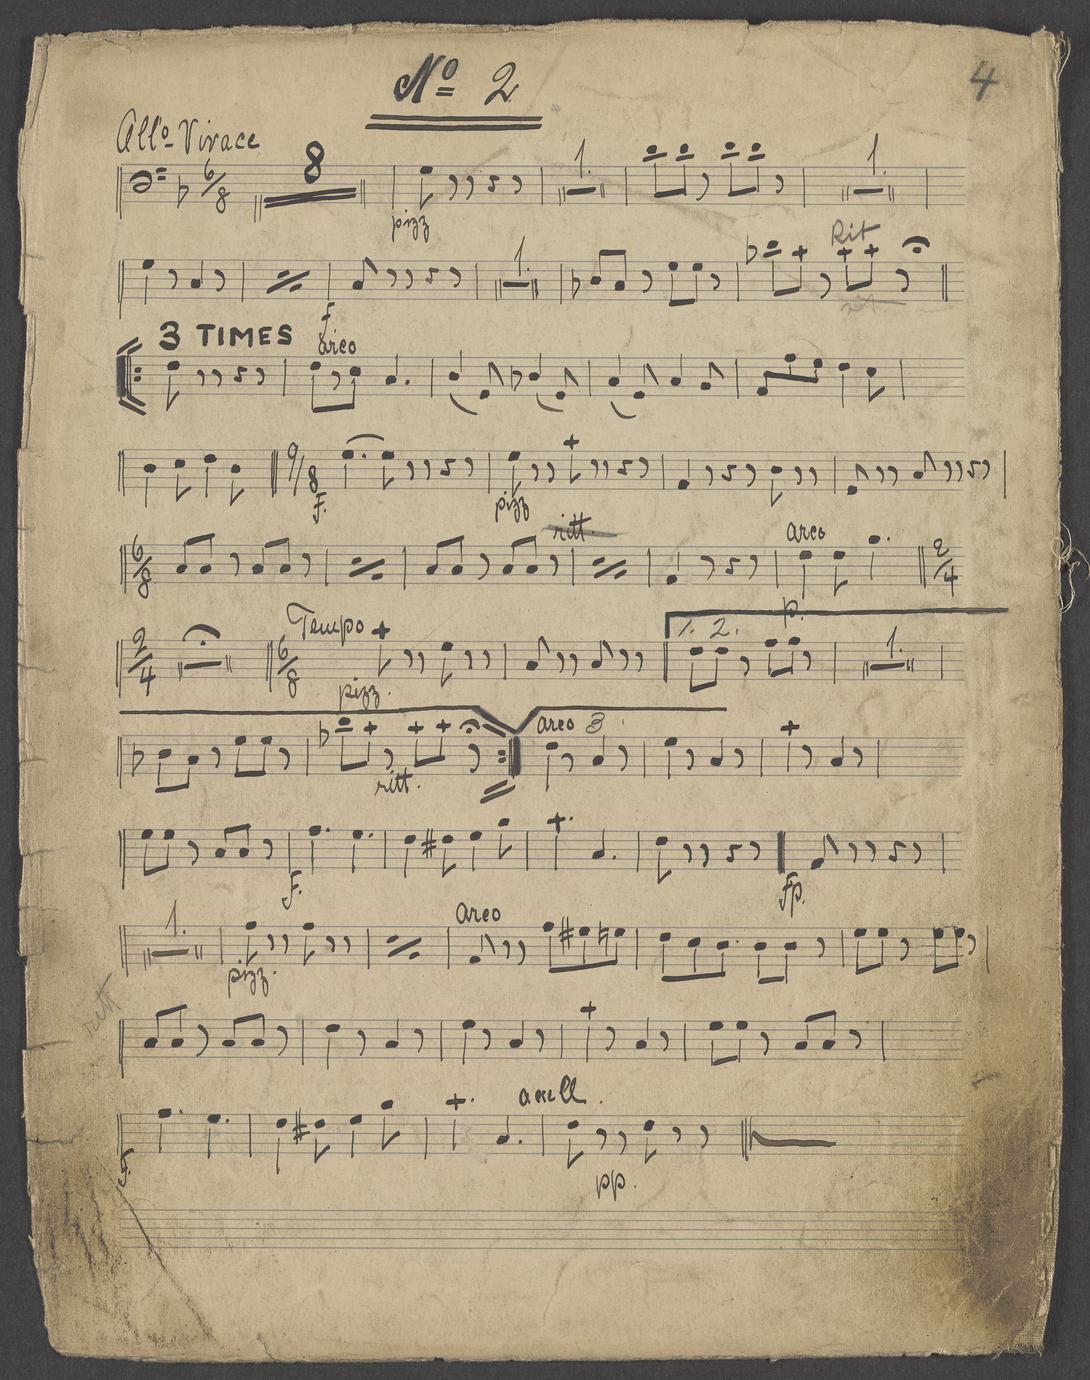 Nº 2
4
Allº Vivace
6/8 8 1. 1.
pizz
Rit
1.
f
3 TIMES arco
9/8
f. pizz
ritt. arco
6/8 2/4
p.
Tempo 1. 2.
2/4 6/8 1.
pizz.
arco 3
ritt.
f. fp.
1. arco
pizz.
ritt
accell.
f.
pp.